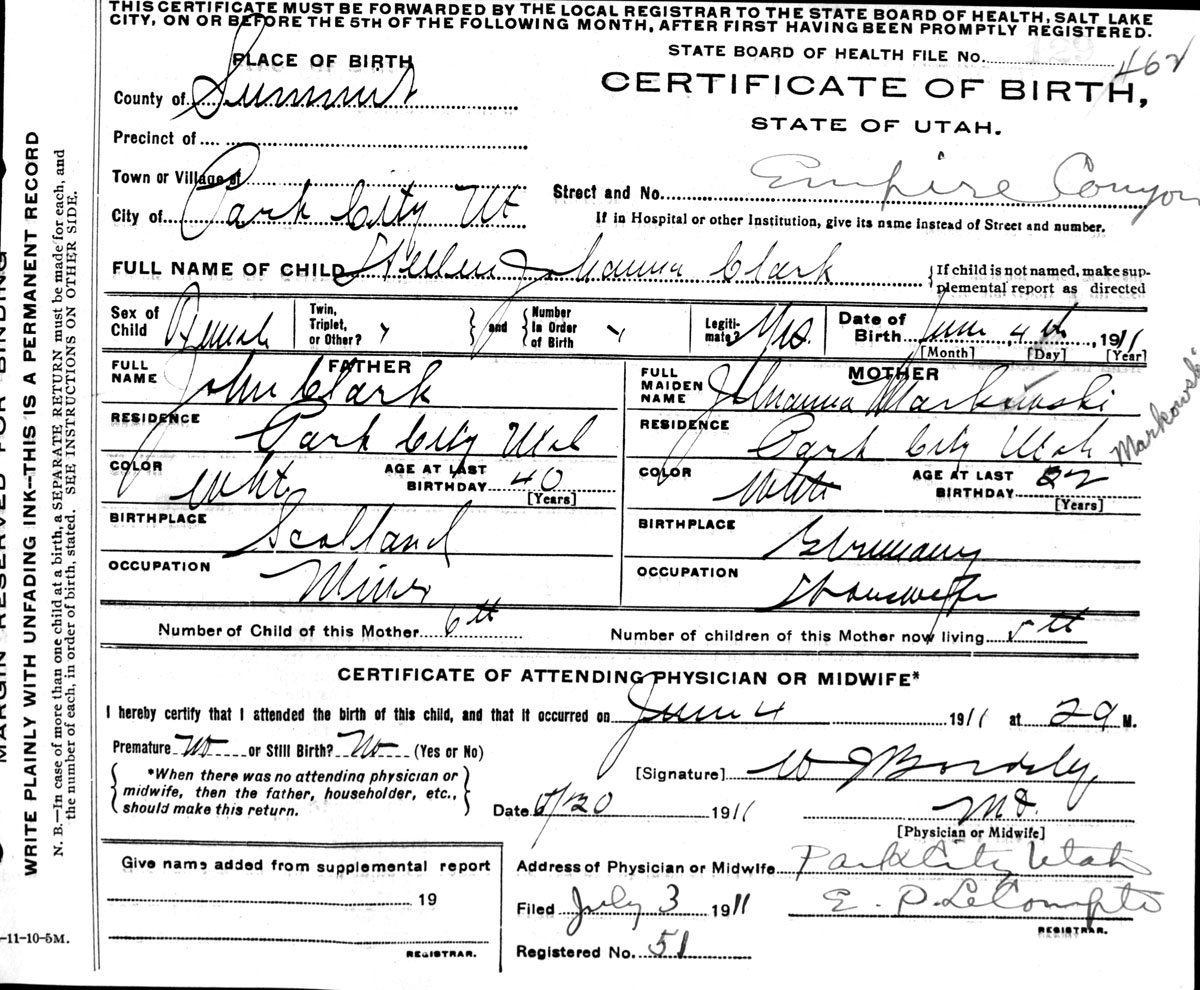 THIS CERTIFICATE MUST BE FORWARDED BY THE LOCAL REGISTRAR TO THE STATE BOARD OF HEALTH, SALT LAKE
CITY, ON OR BEFORE THE 5TH OF THE FOLLOWING MONTH, AFTER FIRST HAVING BEEN PROMPTLY REGISTERED.
PLACE OF BIRTH
STATE BOARD OF HEALTH FILE No. 462
County of Summit
CERTIFICATE OF BIRTH,
STATE OF UTAH.
Precinct of
Town or Village of
Street and No. Empire Conyon
City of Park City Ut
If in Hospital or other Institution, give its name instead of Street and number.
FULL NAME OF CHILD Hellen Johanna Clark
{If child is not named, make sup-
plemental report as directed
Sex of Child Female
Twin, Triplet, or Other?
} and {
Number In Order of Birth
Legiti-mate? Yes.
Date of Birth June 4th, 1911
[Month] [Day] [Year]
FATHER
FULL NAME John Clark
RESIDENCE Park City Utah
COLOR Wht
AGE AT LAST BIRTHDAY 40 [Years]
BIRTHPLACE Scotland
OCCUPATION Miner
MOTHER
FULL MAIDEN NAME Johanna Markowski
Markowski
RESIDENCE Park City Utah
COLOR White
AGE AT LAST BIRTHDAY [Years]
BIRTHPLACE Germany
OCCUPATION Housewife
Number of Child of this Mother 6th
Number of children of this Mother now living 5th
CERTIFICATE OF ATTENDING PHYSICIAN OR MIDWIFE*
I hereby certify that I attended the birth of this child, and that it occurred on June 4 1911 at M.
Premature No or Still Birth? No (Yes or No)
{*When there was no attending physician or
midwife, then the father, householder, etc.,
should make this return.}
[Signature] W J
Date 1911
M.D.
[Physician or Midwife]
Give name added from supplemental report
19
REGISTRAR.
Address of Physician or Midwife Park City Utah
Filed July 3 1911
E. P. LeCompte
REGISTRAR.
Registered No. 51
MARGIN RESERVED FOR BINDING
WRITE PLAINLY WITH UNFADING INK—THIS IS A PERMANENT RECORD
N. B.—In case of more than one child at a birth, a SEPARATE RETURN must be made for each, and
the number of each, in order of birth, stated. SEE INSTRUCTIONS ON OTHER SIDE.
-11-10-5M.